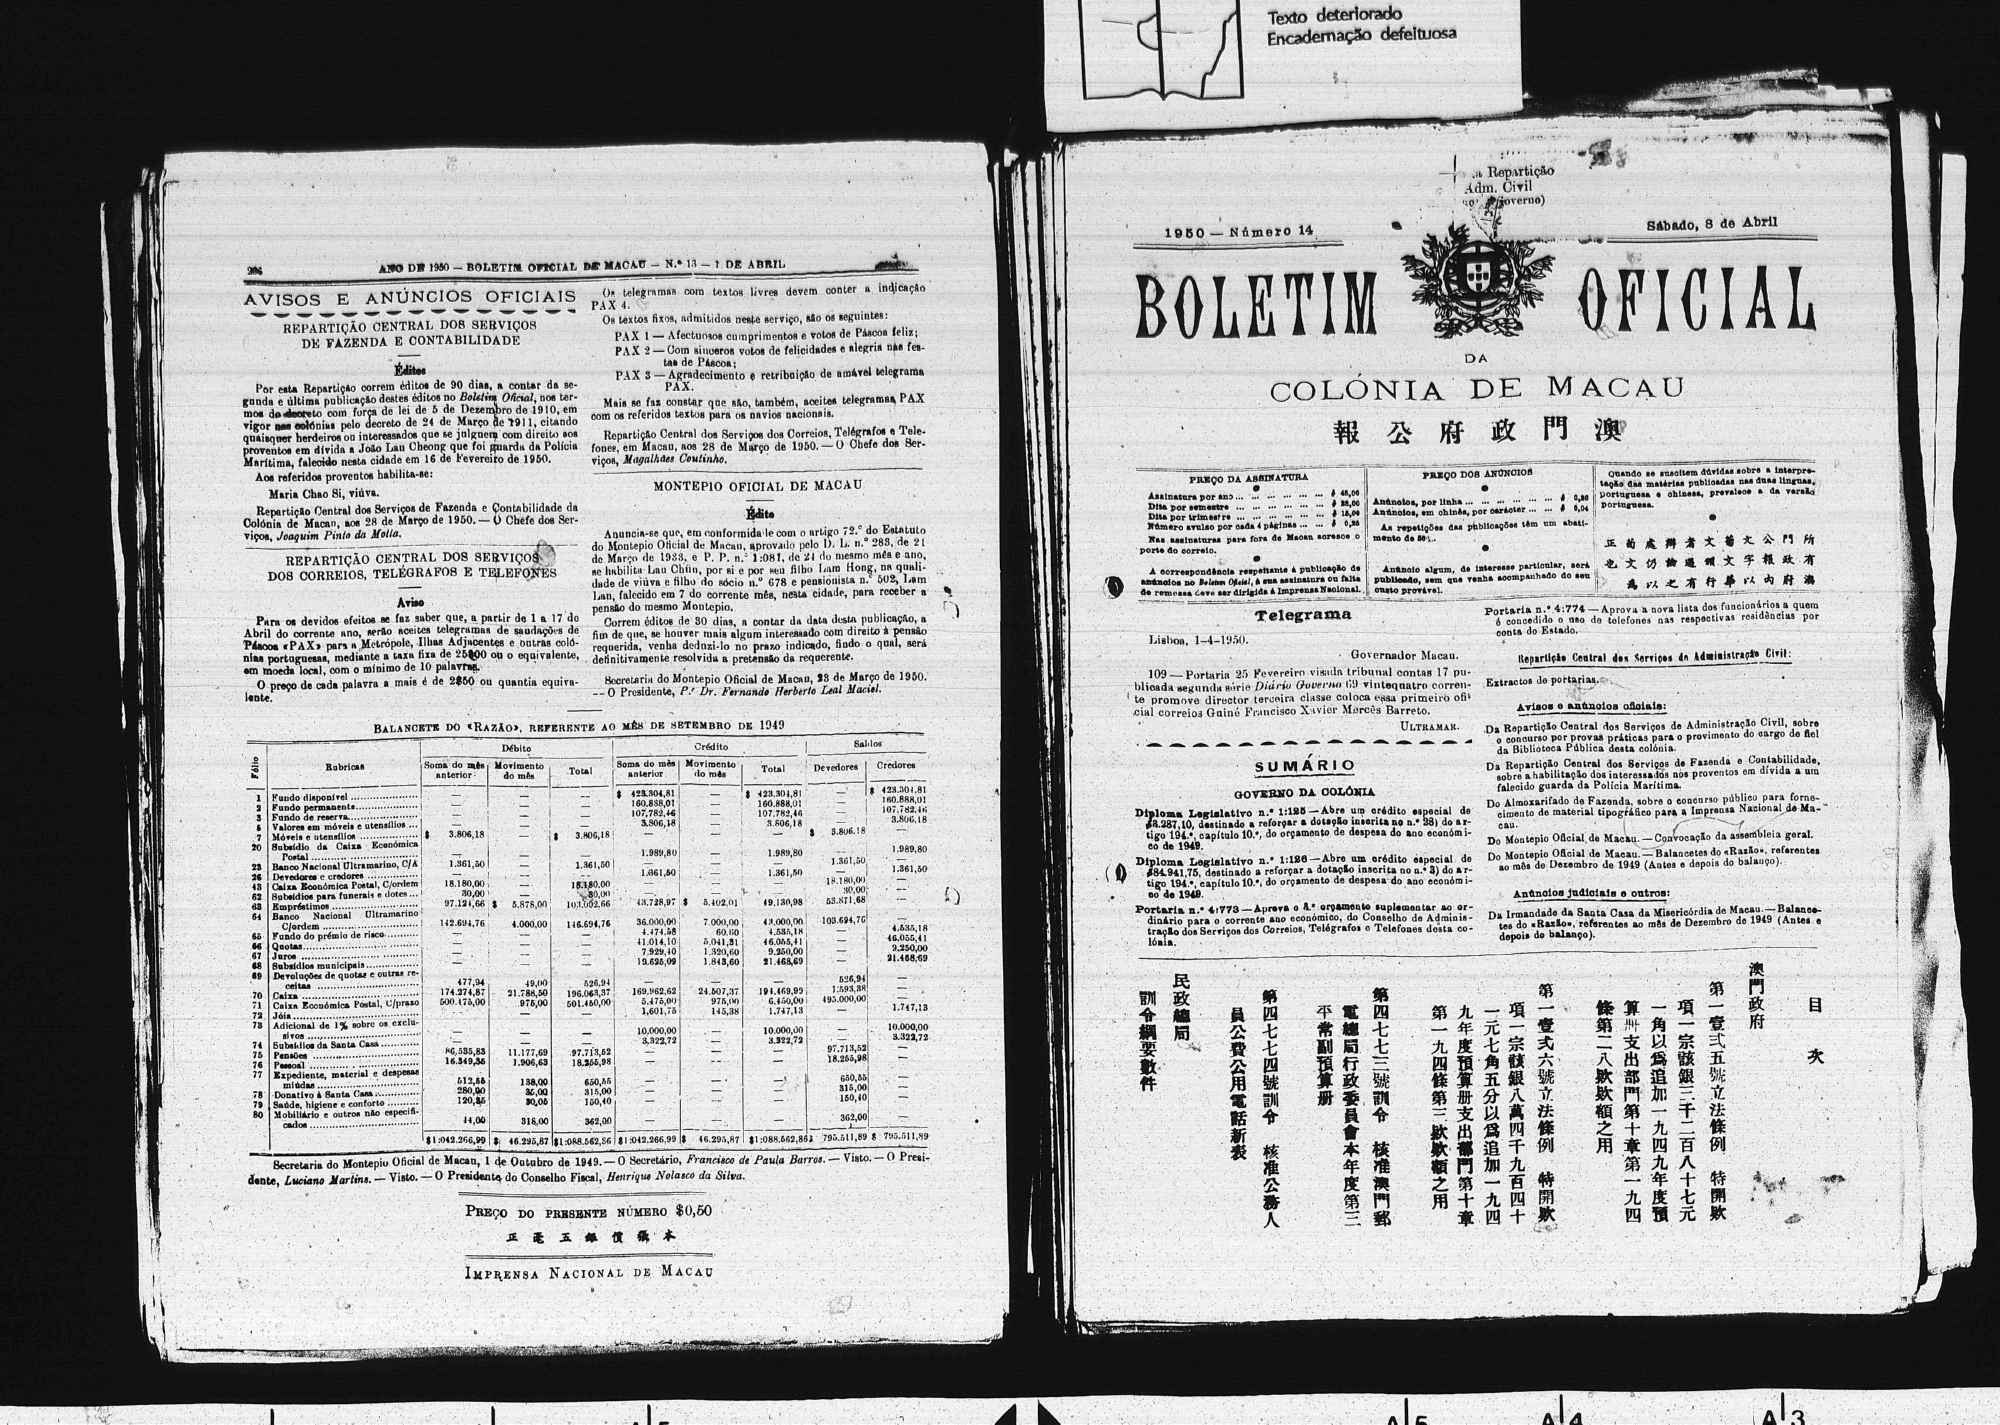 Texto deteriorado
Encadernação defeituosa
ANO DE 1950 — BOLETIM OFICIAL DE MACAU — N.º 13 — 1 DE ABRIL
AVISOS E ANÚNCIOS OFICIAIS
REPARTIÇÃO CENTRAL DOS SERVIÇOS
DE FAZENDA E CONTABILIDADE
Éditos
Por esta Repartição correm éditos de 90 dias, a contar da se-
gunda e última publicação destes éditos no Boletim Oficial, nos ter-
mos do decreto com força de lei de 5 de Dezembro de 1910, em
vigor nas colónias pelo decreto de 24 de Março de 1911, citando
quaisquer herdeiros ou interessados que se julguem com direito aos
proventos em dívida a João Lau Cheong que foi guarda da Polícia
Marítima, falecido nesta cidade em 16 de Fevereiro de 1950.
Aos referidos proventos habilita-se:
Maria Chao Si, viúva.
Repartição Central dos Serviços de Fazenda e Contabilidade da
Colónia de Macau, aos 28 de Março de 1950. — O Chefe dos Ser-
viços, Joaquim Pinto da Motta.
REPARTIÇÃO CENTRAL DOS SERVIÇOS
DOS CORREIOS, TELÉGRAFOS E TELEFONES
Aviso
Para os devidos efeitos se faz saber que, a partir de 1 a 17 do
Abril do corrente ano, serão aceites telegramas de saudações de
Páscoa «PAX» para a Metrópole, Ilhas Adjacentes e outras coló-
nias portuguesas, mediante a taxa fixa de 25$00 ou o equivalente,
em moeda local, com o mínimo de 10 palavras.
O preço de cada palavra a mais é de 2$50 ou quantia equiva-
lente.
Os telegramas com textos livres devem conter a indicação
PAX 4.
Os textos fixos, admitidos neste serviço, são os seguintes:
PAX 1 — Afectuosos cumprimentos e votos de Páscoa feliz;
PAX 2 — Com sinceros votos de felicidades e alegria nas fes-
tas de Páscoa;
PAX 3 — Agradecimento e retribuição de amável telegrama
PAX.
Mais se faz constar que são, também, aceites telegramas PAX
com os referidos textos para os navios nacionais.
Repartição Central dos Serviços dos Correios, Telégrafos e Tele-
fones, em Macau, aos 28 de Março de 1950. — O Chefe dos Ser-
viços, Magalhães Coutinho.
MONTEPIO OFICIAL DE MACAU
Édito
Anuncia-se que, em conformidade com o artigo 72.º do Estatuto
do Montepio Oficial de Macau, aprovado pelo D. L. n.º 283, de 21
de Março de 1933, e P. P. n.º 1:081, de 21 do mesmo mês e ano,
se habilita Lau Chün, por si e por seu filho Lam Hong, na quali-
dade de viúva e filho do sócio n.º 678 e pensionista n.º 502, Lam
Lau, falecido em 7 do corrente mês, nesta cidade, para receber a
pensão do mesmo Montepio.
Correm éditos de 30 dias, a contar da data desta publicação, a
fim de que, se houver mais algum interessado com direito à pensão
requerida, venha deduzi-lo no prazo indicado, findo o qual, será
definitivamente resolvida a pretensão da requerente.
Secretaria do Montepio Oficial de Macau, 23 de Março de 1950.
— O Presidente, P.e Dr. Fernando Herberto Leal Maciel.
BALANCETE DO «RAZÃO», REFERENTE AO MÊS DE SETEMBRO DE 1949
Fólio Rubricas Débito Crédito Saldos
Soma do mês anterior Movimento do mês Total Soma do mês anterior Movimento do mês Total Devedores Credores
1 Fundo disponível — — — $ 423.304,81 — $ 423.304,81 — $ 423.304,81
2 Fundo permanente — — — 160.888,01 — 160.888,01 — 160.888,01
3 Fundo de reserva — — — 107.782,46 — 107.782,46 — 107.782,46
5 Valores em móveis e utensílios — — — 3.806,18 — 3.806,18 — 3.806,18
7 Móveis e utensílios $ 3.806,18 — $ 3.806,18 — — — $ 3.806,18 —
20 Subsídio da Caixa Económica
Postal — — — 1.989,80 — 1.989,80 — 1.989,80
23 Banco Nacional Ultramarino, C/A 1.361,50 — 1.361,50 — — — 1.361,50 —
26 Devedores e credores — — — 1.361,50 — 1.361,50 — 1.361,50
43 Caixa Económica Postal, C/ordem 18.180,00 — 18.180,00 — — — 18.180,00 —
62 Subsídios para funerais e dotes 30,00 — 30,00 — — — 30,00 —
63 Empréstimos 97.124,66 $ 5.878,00 103.002,66 43.728,97 $ 5.402,01 49.130,98 53.871,68 —
64 Banco Nacional Ultramarino
C/ordem 142.694,76 4.000,00 146.694,76 36.000,00 7.000,00 43.000,00 103.694,76 —
65 Fundo do prémio de risco — — — 4.474,58 60,60 4.535,18 — 4.535,18
66 Quotas — — — 41.014,10 5.041,31 46.055,41 — 46.055,41
67 Juros — — — 7.929,40 1.320,60 9.250,00 — 9.250,00
68 Subsídios municipais — — — 19.625,09 1.843,60 21.468,69 — 21.468,69
69 Devoluções de quotas e outras re-
ceitas 477,94 49,00 526,94 — — — 526,94 —
70 Caixa 174.274,87 21.788,50 196.063,37 169.962,62 24.507,37 194.469,99 1.593,38 —
71 Caixa Económica Postal, C/prazo 500.475,00 975,00 501.450,00 5.475,00 975,00 6.450,00 495.000,00 —
72 Jóia — — — 1.601,75 145,38 1.747,13 — 1.747,13
73 Adicional de 1% sobre os exclu-
sivos — — — 10.000,00 — 10.000,00 — 10.000,00
74 Subsídios da Santa Casa — — — 3.322,72 — 3.322,72 — 3.322,72
75 Pensões 86.535,83 11.177,69 97.713,52 — — — 97.713,52 —
76 Pessoal 16.349,35 1.906,63 18.255,98 — — — 18.255,98 —
77 Expediente, material e despesas
miúdas 512,55 138,00 650,55 — — — 650,55 —
78 Donativo à Santa Casa 280,00 35,00 315,00 — — — 315,00 —
79 Saúde, higiene e conforto 120,35 30,05 150,40 — — — 150,40 —
80 Mobiliário e outros não especifi-
cados 44,00 318,00 362,00 — — — 362,00 —
$1:042.266,99 $ 46.295,87 $1:088.562,86 $1:042.266,99 $ 46.295,87 $1:088.562,86 $ 795.511,89 $ 795.511,89
Secretaria do Montepio Oficial de Macau, 1 de Outubro de 1949. — O Secretário, Francisco de Paula Barros. — Visto. — O Presi-
dente, Luciano Martins. — Visto. — O Presidente do Conselho Fiscal, Henrique Nolasco da Silva.
PREÇO DO PRESENTE NÚMERO $0,50
正毫五銀價張本
IMPRENSA NACIONAL DE MACAU
Repartição
Adm. Civil
overno)
1950 — Número 14
Sábado, 8 de Abril
BOLETIM OFICIAL
DA
COLÓNIA DE MACAU
報公府政門澳
PREÇO DA ASSINATURA
Assinatura por ano ... $ 48,00
Dita por semestre ... $ 28,00
Dita por trimestre ... $ 18,00
Número avulso por cada 4 páginas ... $ 0,25
Nas assinaturas para fora de Macau acresce o
porte do correio.
A correspondência respeitante à publicação de
anúncios no Boletim Oficial, à sua assinatura ou falta
de remessa deve ser dirigida à Imprensa Nacional.
PREÇO DOS ANÚNCIOS
Anúncios, por linha ... $ 0,30
Anúncios, em chinês, por carácter ... $ 0,04
As repetições das publicações têm um abati-
mento de 50%.
Anúncio algum, de interesse particular, será
publicado, sem que venha acompanhado do seu
custo provável.
Quando se suscitem dúvidas sobre a interpre-
tação das matérias publicadas nas duas línguas,
portuguesa e chinesa, prevalece a da versão
portuguesa.
Telegrama
Lisboa, 1-4-1950.
Governador Macau.
109 — Portaria 25 Fevereiro visada tribunal contas 17 pu-
blicada segunda série Diário Governo 69 vintequatro corren-
te promove director terceira classe coloca essa primeiro ofi-
cial correios Guiné Francisco Xavier Mercês Barreto.
ULTRAMAR.
SUMÁRIO
GOVERNO DA COLÓNIA
Diploma Legislativo n.º 1:125 — Abre um crédito especial de
$3.287,10, destinado a reforçar a dotação inscrita no n.º 28) do ar-
tigo 194.º, capítulo 10.º, do orçamento de despesa do ano económi-
co de 1949.
Diploma Legislativo n.º 1:126 — Abre um crédito especial de
$84.941,75, destinado a reforçar a dotação inscrita no n.º 3) do ar-
tigo 194.º, capítulo 10.º, do orçamento de despesa do ano económi-
co de 1949.
Portaria n.º 4:773 — Aprova o 3.º orçamento suplementar ao or-
dinário para o corrente ano económico, do Conselho de Adminis-
tração dos Serviços dos Correios, Telégrafos e Telefones desta co-
lónia.
Portaria n.º 4:774 — Aprova a nova lista dos funcionários a quem
é concedido o uso de telefones nas respectivas residências por
conta do Estado.
Repartição Central dos Serviços de Administração Civil:
Extractos de portarias.
Avisos e anúncios oficiais:
Da Repartição Central dos Serviços de Administração Civil, sobre
o concurso por provas práticas para o provimento do cargo de fiel
da Biblioteca Pública desta colónia.
Da Repartição Central dos Serviços de Fazenda e Contabilidade,
sobre a habilitação dos interessados nos proventos em dívida a um
falecido guarda da Polícia Marítima.
Do Almoxarifado de Fazenda, sobre o concurso público para forne-
cimento de material tipográfico para a Imprensa Nacional de Ma-
cau.
Do Montepio Oficial de Macau. — Convocação da assembleia geral.
Do Montepio Oficial de Macau. — Balancetes do «Razão», referentes
ao mês de Dezembro de 1949 (Antes e depois do balanço).
Anúncios judiciais e outros:
Da Irmandade da Santa Casa da Misericórdia de Macau. — Balance-
tes do «Razão», referentes ao mês de Dezembro de 1949 (Antes e
depois do balanço).
目次
澳門政府
第一壹弍五號立法條例 特開欵
項一宗該銀三千二百八十七元
一角以爲追加一九四九年度預
算卅支出部門第十章第一九四
條第二八欵欵額之用
第一壹弍六號立法條例 特開欵
項一宗該銀八萬四千九百四十
一元七角五分以爲追加一九四
九年度預算册支出部門第十章
第一九四條第三欵欵額之用
第四七七三號訓令 核准澳門郵
電總局行政委員會本年度第三
平常副預算册
第四七七四號訓令 核准公務人
員公費公用電話新表
民政總局
訓令綱要數件